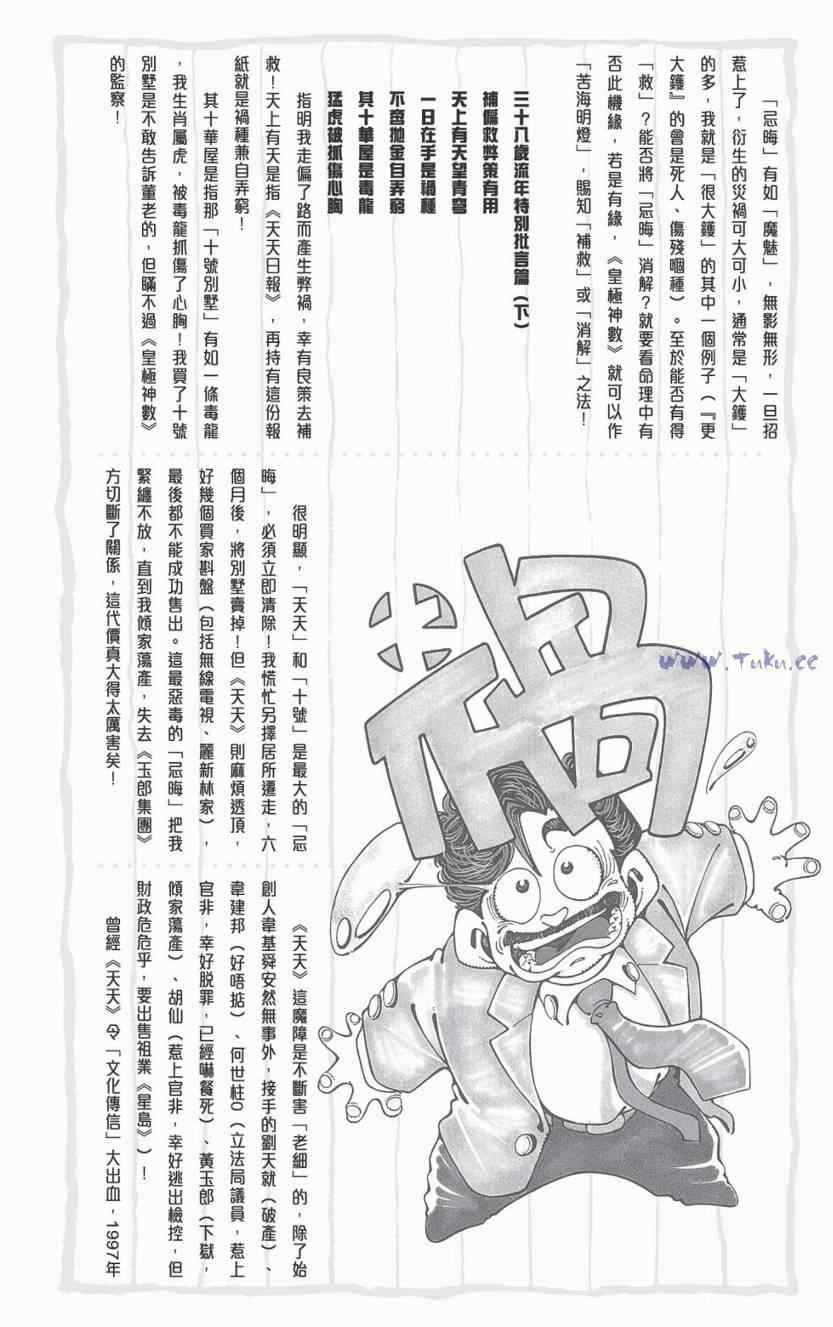 「忌晦」有如「魔魅」，無影無形，一旦招
惹上了，衍生的災禍可大可小，通常是「大鑊」
的多，我就是「很大鑊」的其中一個例子（『更
大鑊』的曾是死人、傷殘嗰種）。至於能否有得
「救」？能否將「忌晦」消解？就要看命理中有
否此機緣，若是有緣，《皇極神數》就可以作
「苦海明燈」，賜知「補救」或「消解」之法！
三十八歲流年特別批言篇（下）
補偏救弊策有用
天上有天望青穹
一日在手是禍種
不啻拋金自弄窮
其十華屋是毒龍
猛虎被抓傷心胸
指明我走偏了路而產生弊禍，幸有良策去補
救！天上有天是指《天天日報》，再持有這份報
紙就是禍種兼自弄窮！
其十華屋是指那「十號別墅」有如一條毒龍
，我生肖屬虎，被毒龍抓傷了心胸！我買了十號
別墅是不敢告訴董老的，但瞞不過《皇極神數》
的監察！
很明顯，「天天」和「十號」是最大的「忌
晦」，必須立即清除！我慌忙另擇居所遷走，六
個月後，將別墅賣掉！但《天天》則麻煩透頂，
好幾個買家斟盤（包括無線電視、麗新林家），
最後都不能成功售出。這最惡毒的「忌晦」把我
緊纏不放，直到我傾家蕩產，失去《玉郎集團》
方切斷了關係，這代價真大得太厲害矣！
禍
www.Tuku.cc
《天天》這魔障是不斷害「老細」的，除了始
創人韋基舜安然無事外，接手的劉天就（破產）、
韋建邦（好唔掂）、何世柱0（立法局議員，惹上
官非，幸好脫罪，已經嚇餐死）、黃玉郎（下獄，
傾家蕩產）、胡仙（惹上官非，幸好逃出檢控，但
財政危危乎，要出售祖業《星島》）！
曾經《天天》令「文化傳信」大出血，1997年